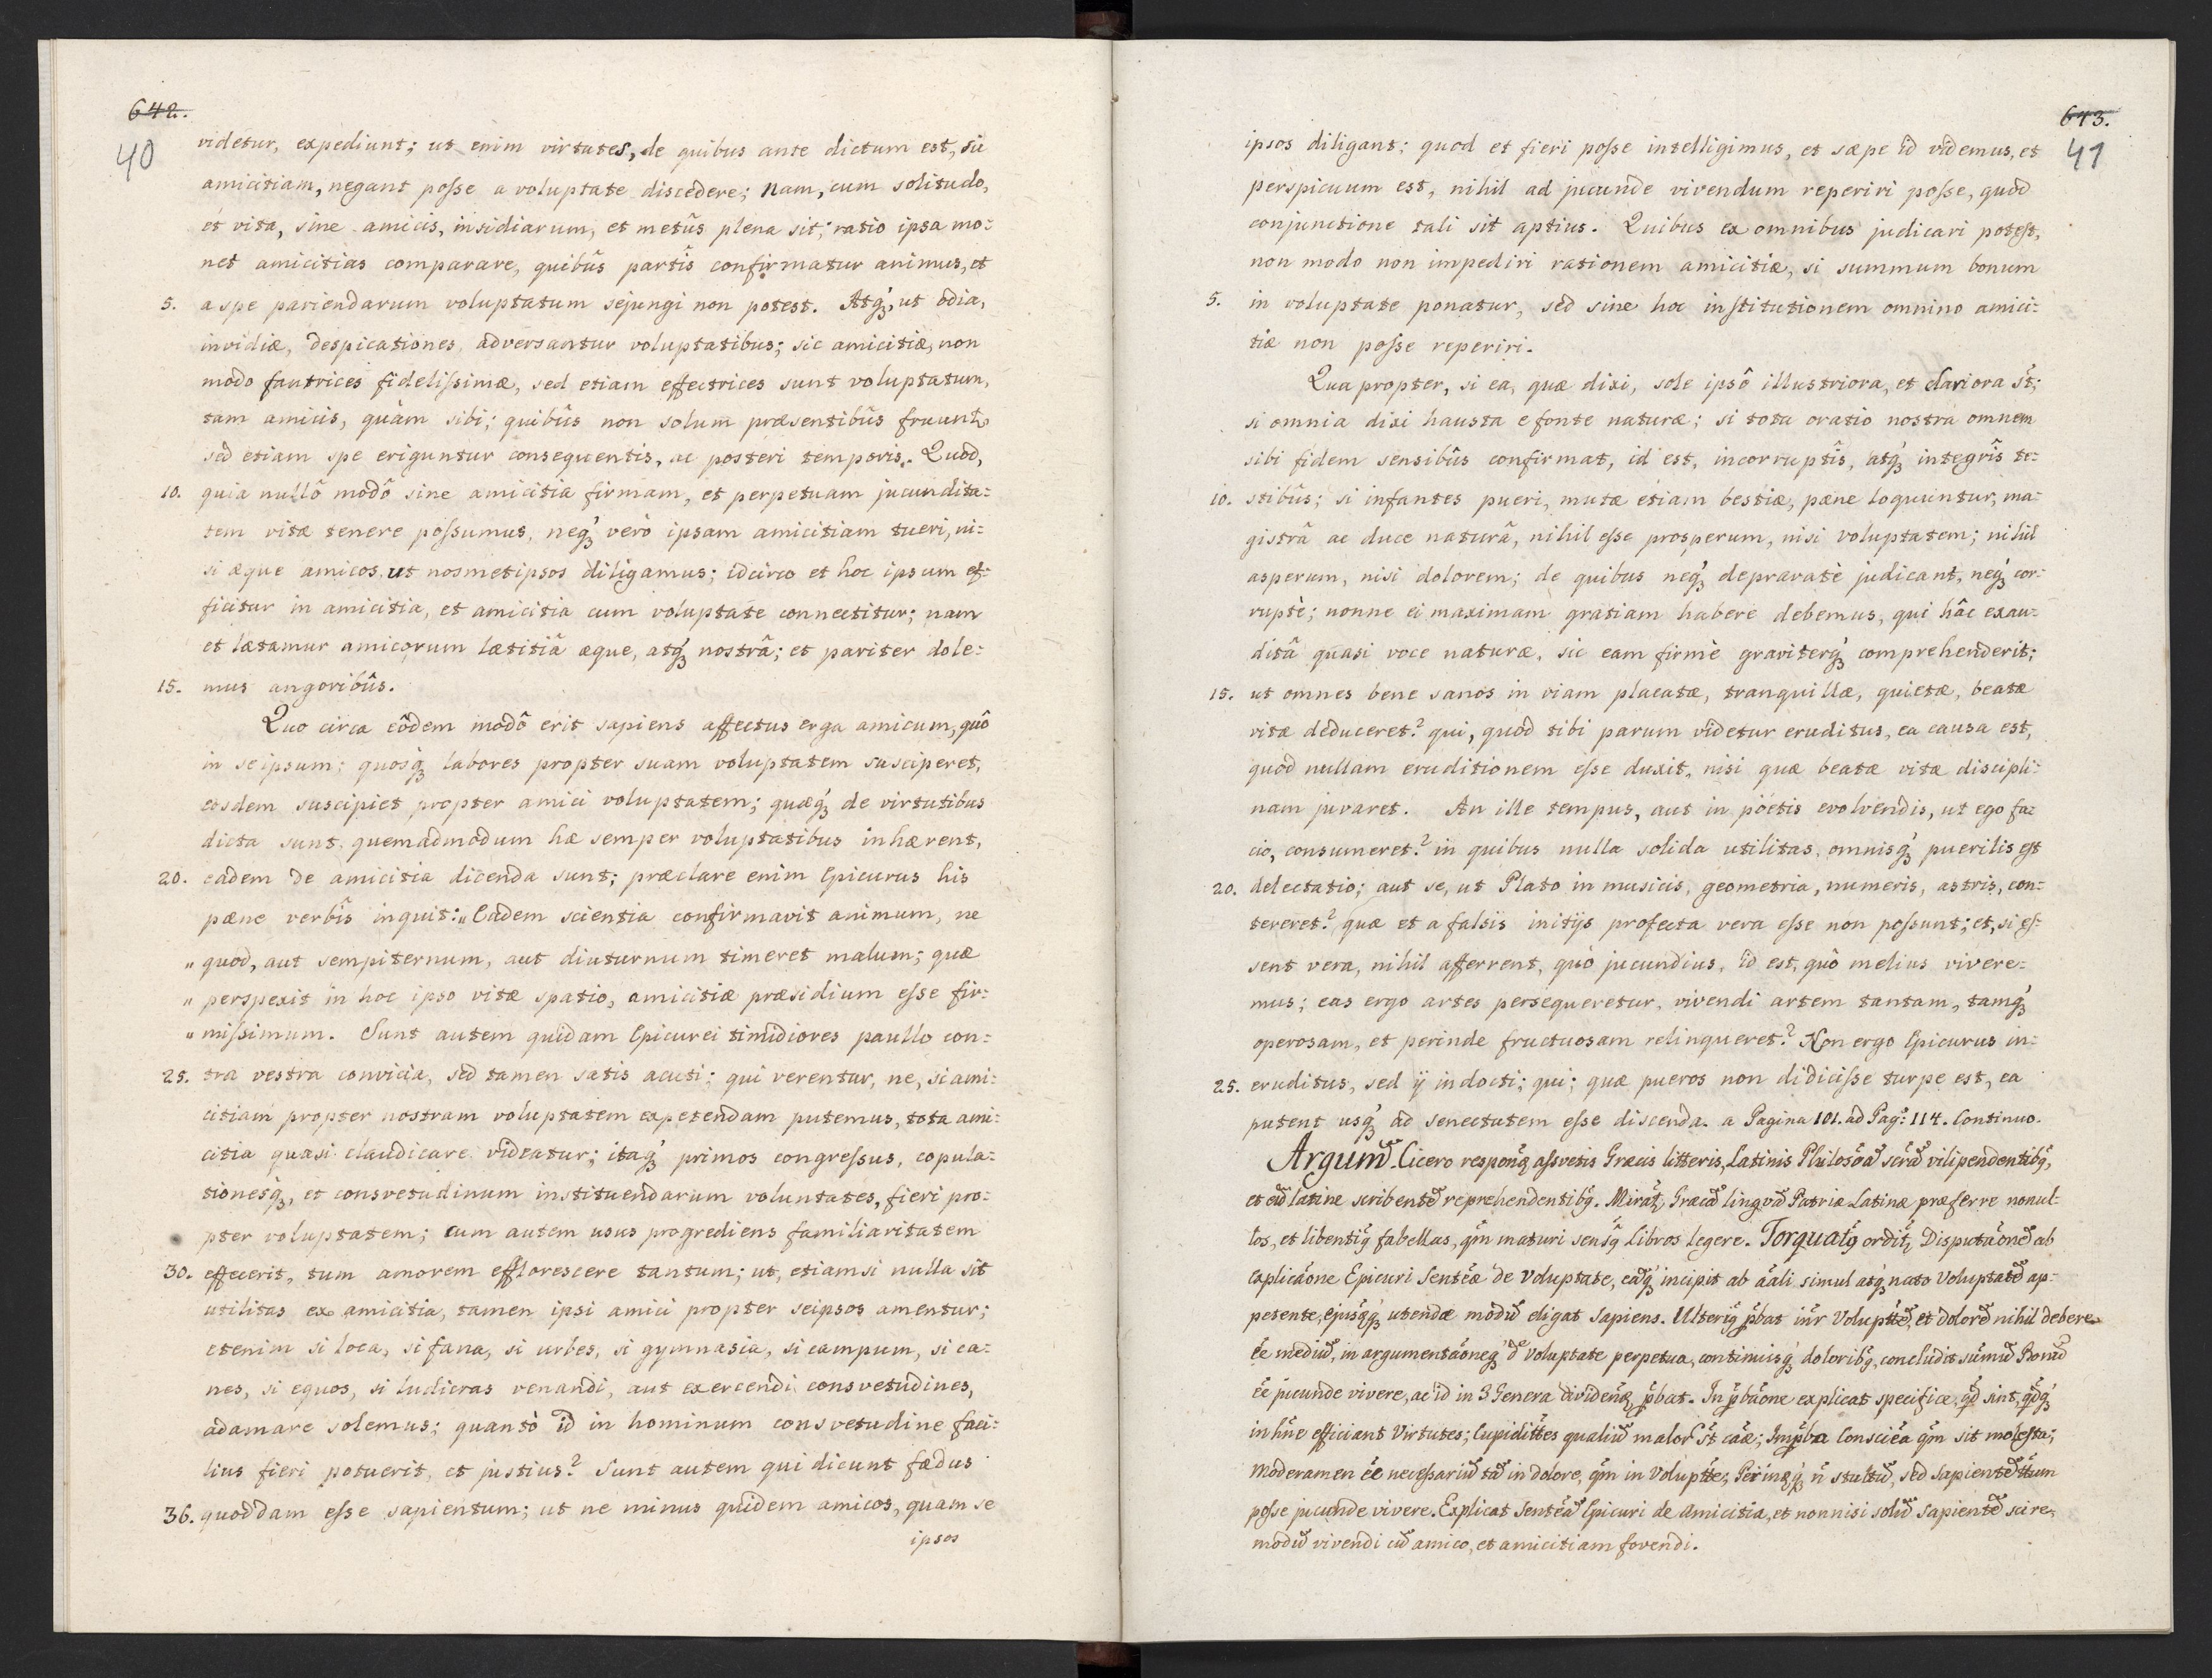 642.
40
videtur, expediunt; ut enim virtutes, de quibus ante dictum est, sic
amicitiam, negant posse a voluptate discedere; Nam, cum solitudo,
et vita, sine amicis, insidiarum, et metûs plena sit; ratio ipsa mo:
net amicitias comparare, quibûs partîs confirmatur animus, et
5. a spe pariendarum voluptatum sejungi non potest. Atq́ꝫ, ut odia,
invidiæ, despicationes adversantur voluptatibus; sic amicitiæ, non
modo fautrices fidelissimæ, sed etiam effectrices sunt voluptatum,
tam amicis, quàm sibi; quibûs non solum præsentibûs fruunt
sed etiam spe eriguntur consequentis, ac posteri temporis. Quod,
10. quia nullô modô sine amicitia firmam, et perpetuam jucundita:
tem vitæ tenere possumus, neq́ꝫ verò ipsam amicitiam tueri, ni:
si æque amicos, ut nosmetipsos diligamus; idcirco et hoc ipsum ef:
ficitur in amicitia, et amicitia cum voluptate connectitur; nam
et lætamur amicorum lætitiâ æque, atq́ꝫ nostrâ; et pariter dole:
15. mus angoribûs.
Quo circa eôdem modô erit sapiens affectus erga amicum, quô
in se ipsum; quosq́ꝫ labores propter suam voluptatem susciperet,
eosdem suscipiet propter amici voluptatem; quæq́ꝫ de virtutibus
dicta sunt, quemadmodum hæ semper voluptatibus inhærent,
20. eadem de amicitia dicenda sunt; præclare enim Epicurus his
pæne verbîs inquit: „ Eadem scientia confirmavit animum, ne
„ quod, aut sempiternum, aut diuturnum timeret malum; quæ
„ perspexit in hoc ipso vitæ spatio, amicitiæ præsidium esse fir:
„ missimum. Sunt autem quidam Epicurei timidiores paullo con:
25. tra vestra convicia, sed tamen satis acuti; qui verentur, ne, si ami:
citiam propter nostram voluptatem expetendam putemus, tota ami:
citia quasi claudicare videatur; itaq́ꝫ primos congressus, copula:
tionesq́ꝫ, et consvetudinum instituendarum voluntates, fieri pro:
pter voluptatem; cum autem usus progrediens familiaritatem
30. effecerit, tum amorem efflorescere tantum; ut, etiamsi nulla sit
utilitas ex amicitia, tamen ipsi amici propter seipsos amentur;
etenim si loca, si fana, si urbes, si gymnasia, si campum, si ca:
nes, si equos, si ludicras venandi, aut exercendi consvetudines,
adamare solemus; quantò id in hominum consvetudine faci:
lius fieri potuerit, et justius? Sunt autem qui dicunt fædus
36. quoddam esse sapientum; ut ne minus quidem amicos, quam se
ipsos
643.
41
ipsos diligant; quod et fieri posse intelligimus, et sæpe id videmus, et
perspicuum est, nihil ad jucunde vivendum reperiri posse, quod
conjunctione tali sit aptius. Quibus ex omnibus judicari potest,
non modo non impediri rationem amicitiæ, si summum bonum
5. in voluptate ponatur, sed sine hoc institutionem omnino amici:
tiæ non posse reperiri.
Qua propter, si ea, quæ dixi, sole ipsô illustriora, et clariora st̃;
si omnia dixi hausta e fonte naturæ; si tota oratio nostra omnem
sibi fidem sensibûs confirmat, id est, incorruptîs, atq́ꝫ integrîs te:
10. stibûs; si infantes pueri, mutæ etiam bestiæ, pæne loquuntur, ma:
gistrâ ac duce naturâ, nihil esse prosperum, nisi voluptatem; nihil
asperum, nisi dolorem; de quibus neq́ꝫ depravatè judicant, neq́ꝫ cor:
ruptè; nonne ei maximam gratiam habere debemus, qui hâc exau:
ditâ quasi voce naturæ, sic eam firmè graviterq́ꝫ comprehenderit;
15. ut omnes bene sanos in viam placatæ, tranquillæ, quietæ, beatæ
vitæ deduceret? qui, quod tibi parum videtur eruditus, ea causa est,
quod nullam eruditionem esse duxit, nisi quæ beatæ vitæ discipli:
nam juvaret. An ille tempus, aut in pöetis evolvendis, ut ego fa:
cio, consumeret? in quibus nulla solida utilitas, omnisq́ꝫ puerilis est
20. delectatio; aut se, ut Plato in musicis, geometria, numeris, astris, con:
tereret? quæ et a falsis initijs profecta vera esse non possunt; et, si es:
sent vera, nihil afferrent, quò jucundius, id est, quò melius vivere:
mus; eas ergo artes persequeretur, vivendi artem tantam, tamq́ꝫ
operosam, et perinde fructuosam relinqueret? Non ergo Epicurus in:
25. eruditus, sed ij indocti; qui; quæ pueros non didicisse turpe est, ea
putent usq́ꝫ ad senectutem esse discenda. a Pagina 101. ad Pag: 114. Continuo.
Cicero assvetis Græcis litteris, Latinis vilipendentibꝗ,
et latine reprehendentibꝗ. Patriæ Latinæ præferre nonul-
los, et fabellas, maturi Libros legere. ab
Epicuri de Voluptate, incipit ab simul atq́ꝫ nato ap:
petente, utendæ eligat sapiens. et nihil debere
in voluptate perpetua, concludit
jucunde vivere, ac id in 3 Genera explicat specificæ, sint,
efficiant Virtutes; sit molesta;
Moderamen in dolore, in sed
posse jucunde vivere. Explicat Epicuri de Amicitia, et nonnisi scire
vivendi amico, et amicitiam fovendi.